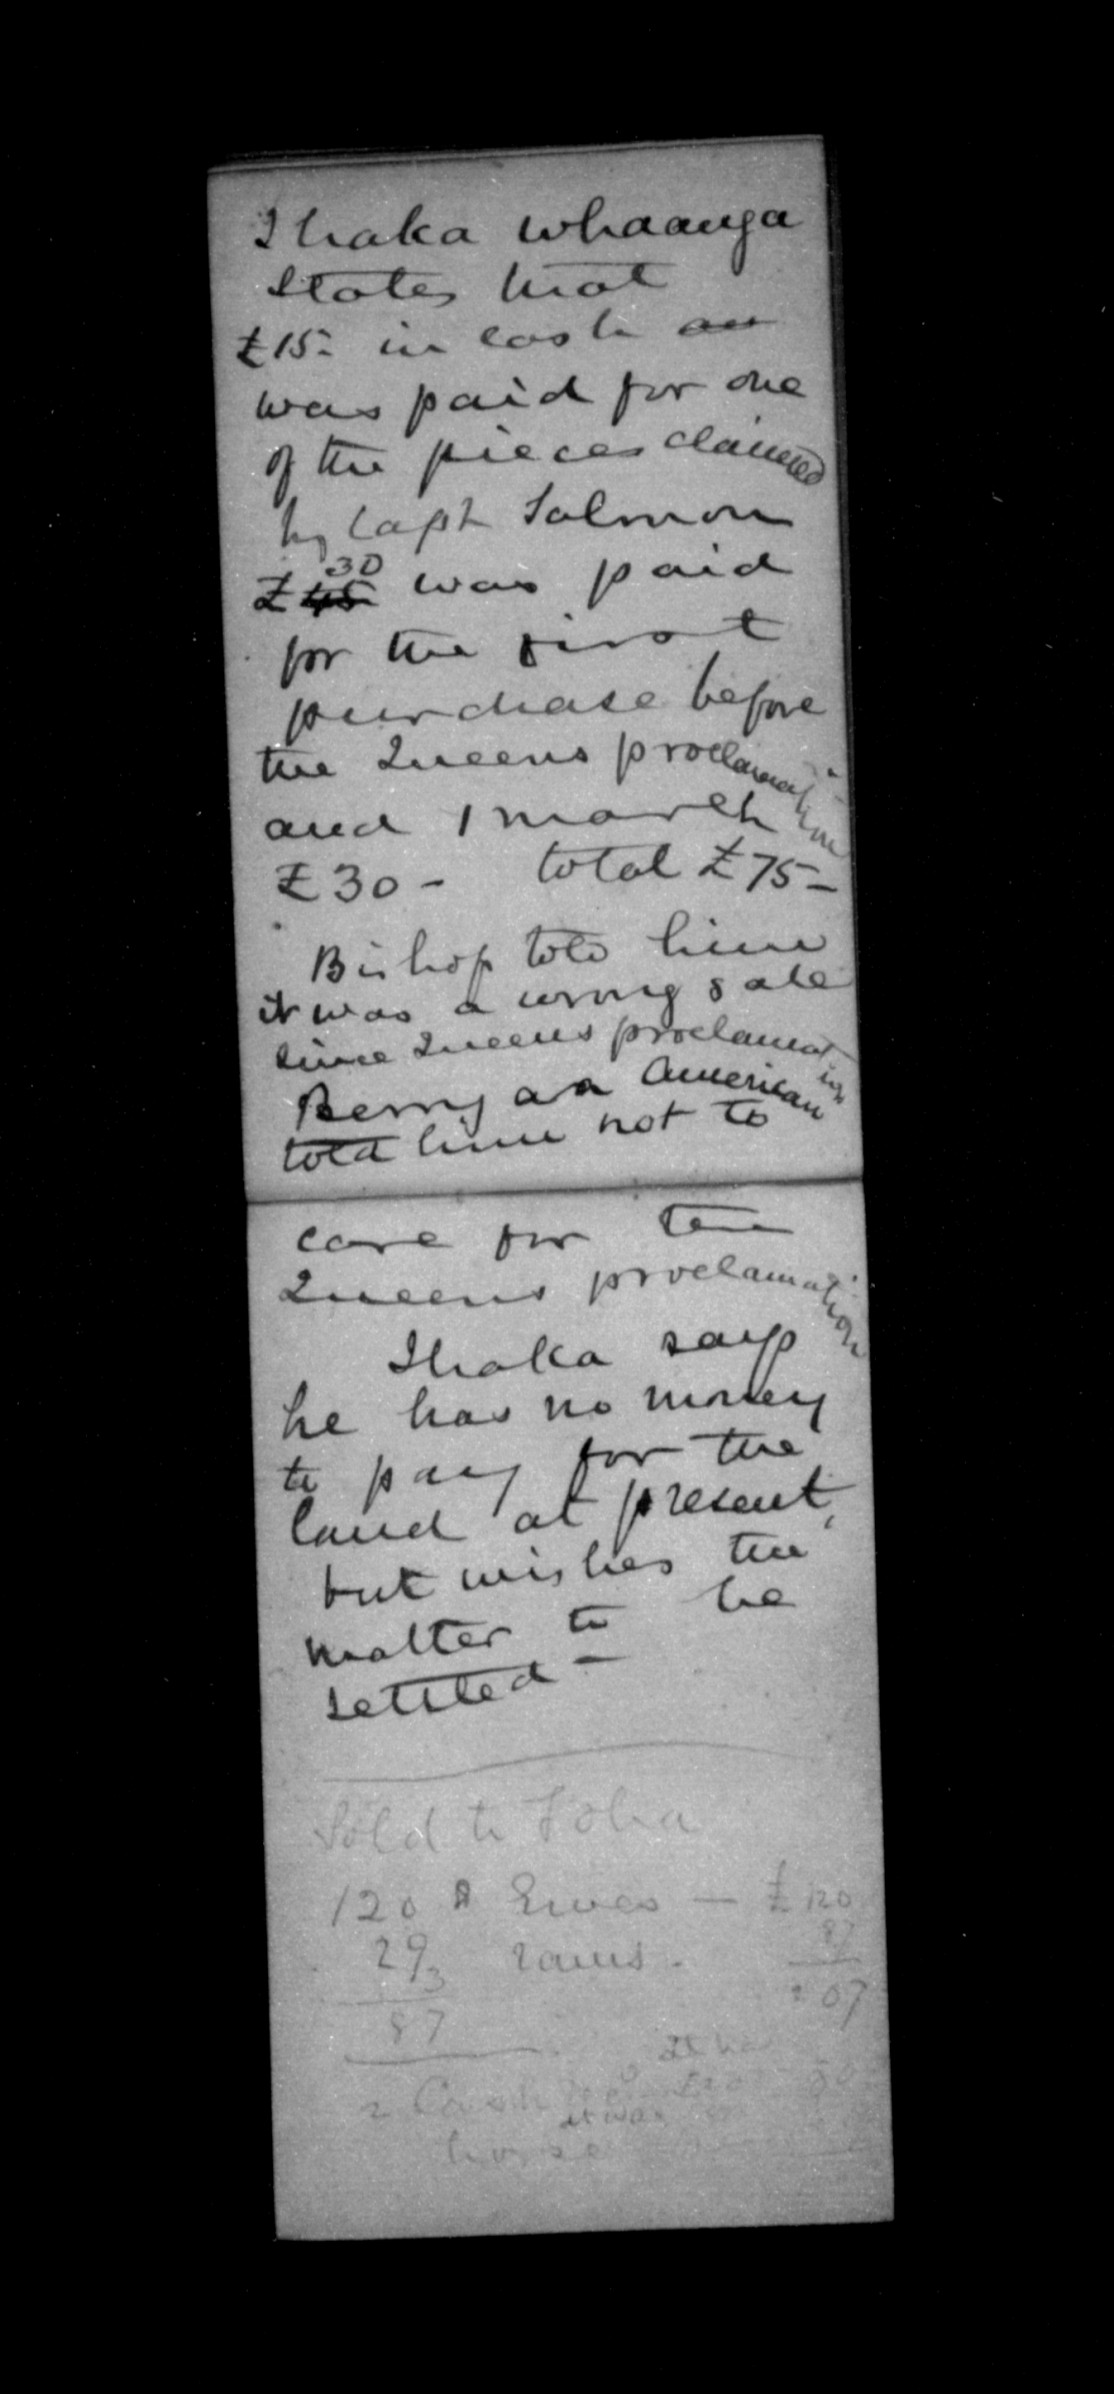 Ihaka whaanga
States that
£15- in cash an
was paid for one
of the pieces claimed
by Capt Salmon
£45 30 was paid
for the first
purchase before
the Queens proclamation
and 1 march
£30 - total £75-
Bishop told him
it was a wrong sale
since Queens proclamation
Berry an American
told him not to
care for the
Queens proclamation
Ihaka says
he has no money
to pay for the
land at present,
but wishes the
matter to be
settled -
Sold to
120 Ewes - £120
29 rams. 87
3 207
87
2 Cash
it was
horse